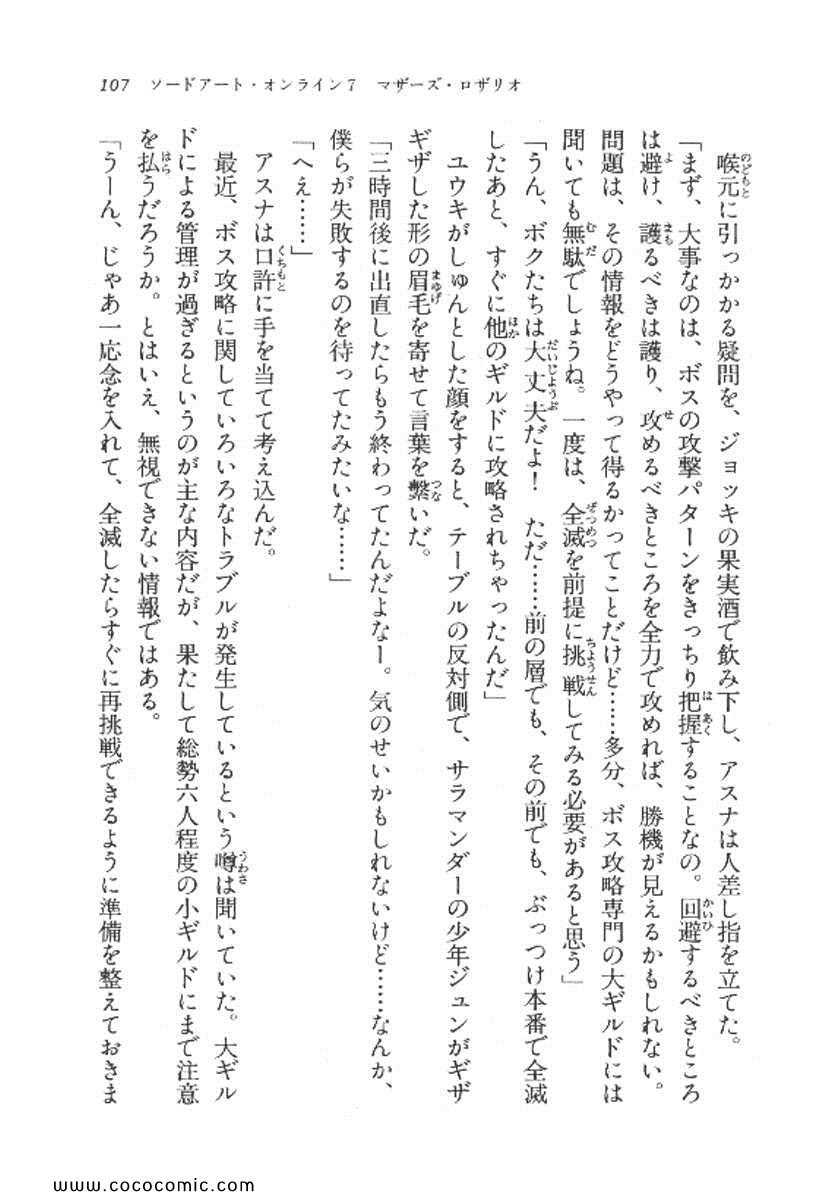 107 ソードアート・オンライン7 マザーズ・ロザリオ
喉元に引っかかる疑問を、ジョッキの果実酒で飲み下し、アスナは人差し指を立てた。
「まず、大事なのは、ボスの攻撃パターンをきっちり把握することなの。回避するべきところ
は避け、護るべきは護り、攻めるべきところを全力で攻めれば、勝機が見えるかもしれない。
問題は、その情報をどうやって得るかってことだけど……多分、ボス攻略専門の大ギルドには
聞いても無駄でしょうね。一度は、全滅を前提に挑戦してみる必要があると思う」
「うん、ボクたちは大丈夫だよ！　ただ……前の層でも、その前でも、ぶっつけ本番で全滅
したあと、すぐに他のギルドに攻略されちゃったんだ」
ユウキがしゅんとした顔をすると、テーブルの反対側で、サラマンダーの少年ジュンがギザ
ギザした形の眉毛を寄せて言葉を繋いだ。
「三時間後に出直したらもう終わってたんだよなー。気のせいかもしれないけど……なんか、
僕らが失敗するのを待ってたみたいな……」
「へぇ……」
アスナは口許に手を当てて考え込んだ。
最近、ボス攻略に関していろいろなトラブルが発生しているという噂は聞いていた。大ギル
ドによる管理が過ぎるというのが主な内容だが、果たして総勢六人程度の小ギルドにまで注意
を払うだろうか。とはいえ、無視できない情報ではある。
「うーん、じゃあ一応念を入れて、全滅したらすぐに再挑戦できるように準備を整えておきま
www.cococomic.com